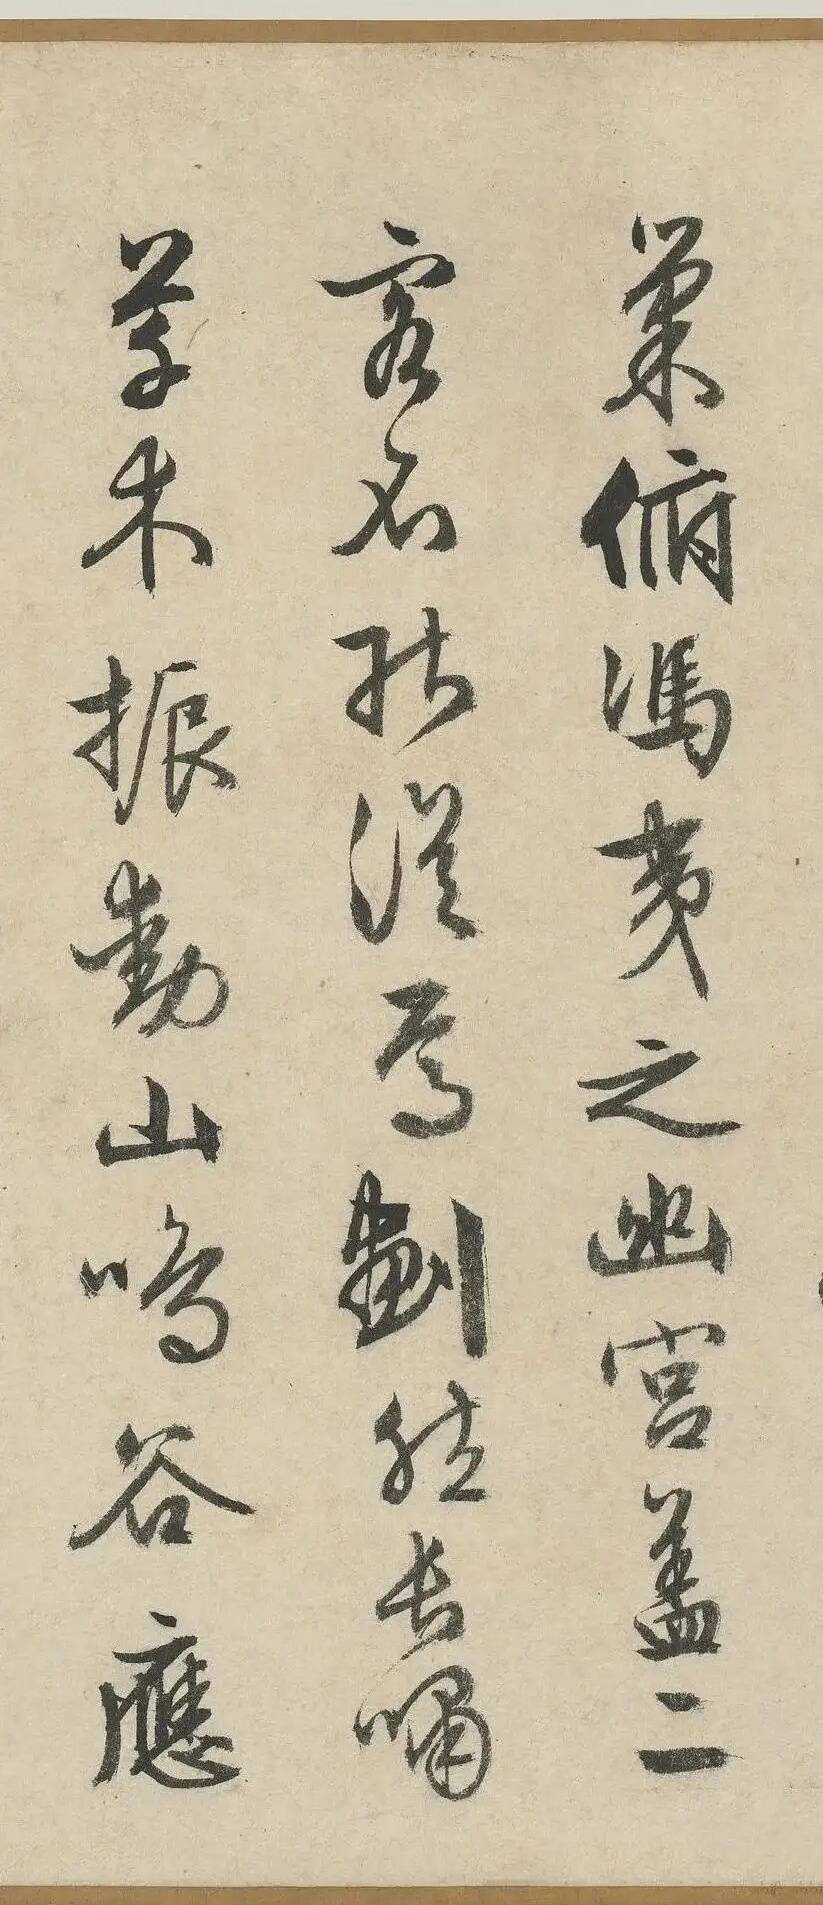 巢俯馮夷之幽宮蓋二
客不能從焉劃然長嘯
草木振動山鳴谷應